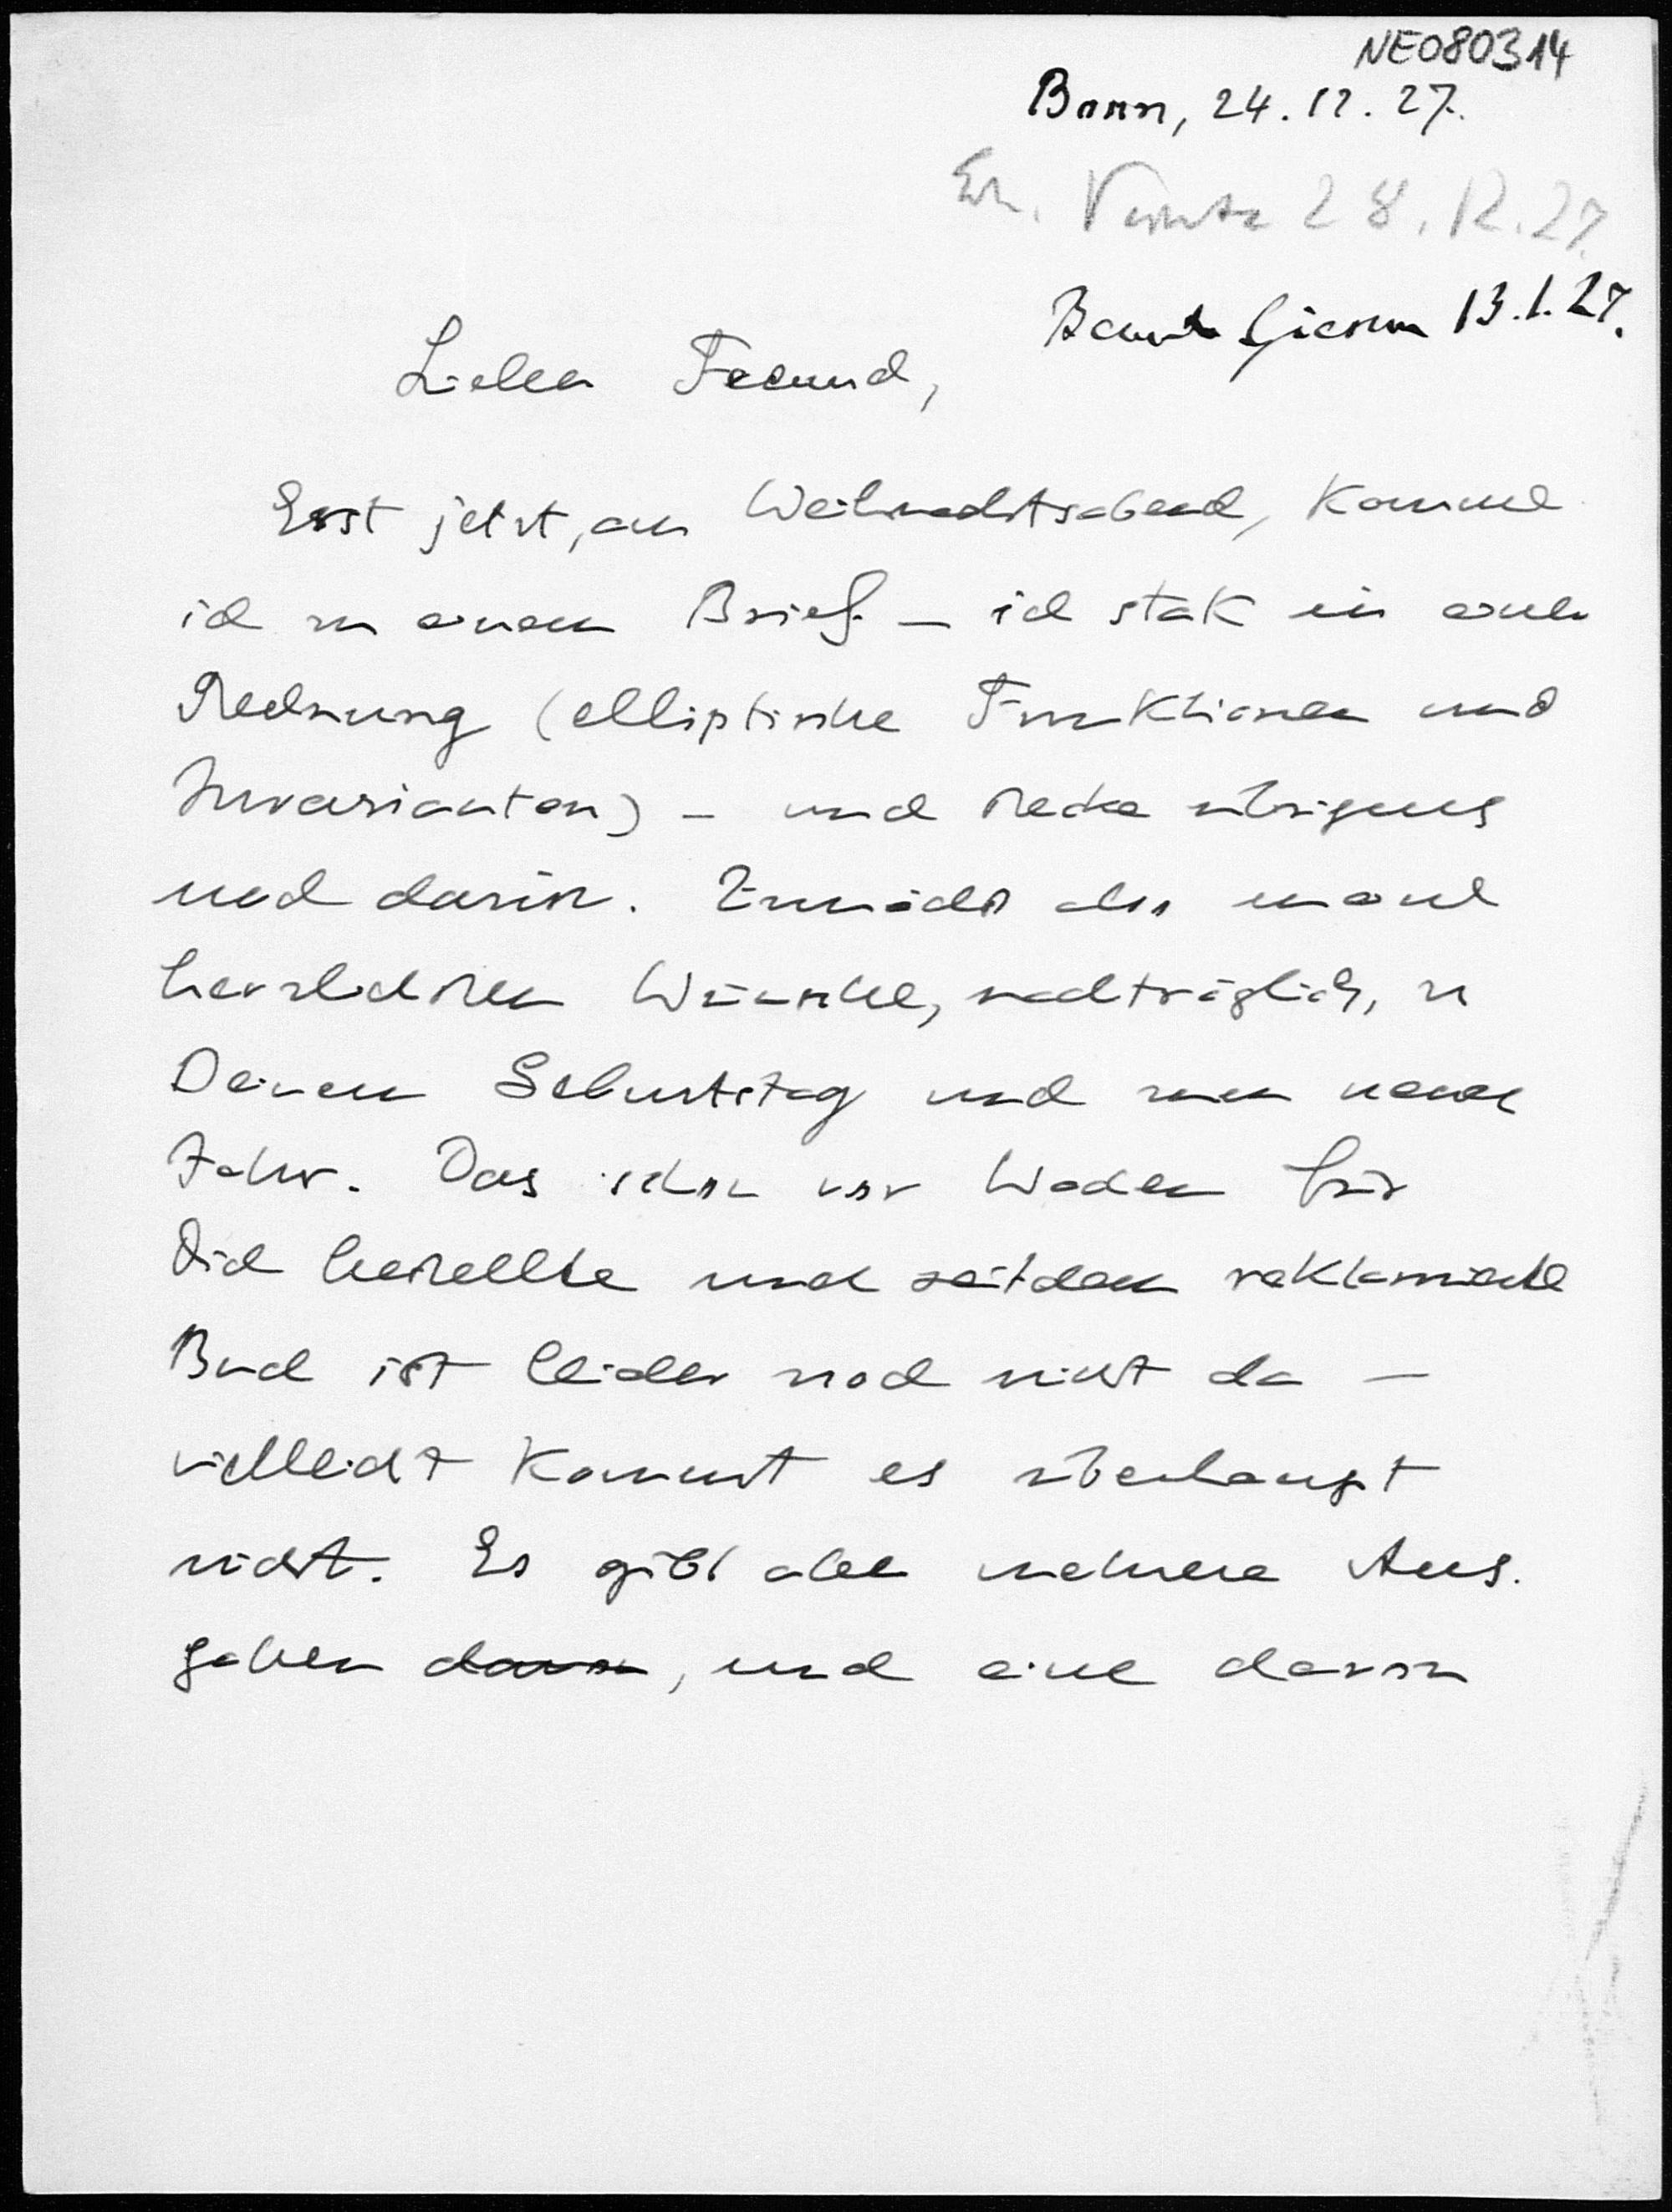 NE080314
Bonn, 24.12.27.
Erh. 28.12.27.
Beant. Giessen 13.1.27.
Lieber Freund,
Erst jetzt, am Weihnachtsabend, komme
ich zu einem Brief – ich stak in einer
Rechnung (elliptische Funktionen und
Invarianten) – und stecke übrigens
noch darin. Zunächst also meine
herzlichsten Wünsche, nachträglich, zu
Deinem Geburtstag und zum neuen
Jahr. Das schon vor Wochen für
Dich bestellte und seitdem reklamierte
Buch ist leider noch nicht da –
vielleicht kommt es überhaupt
nicht. Es gibt aber mehrere Aus-
gaben davon, und eine davon